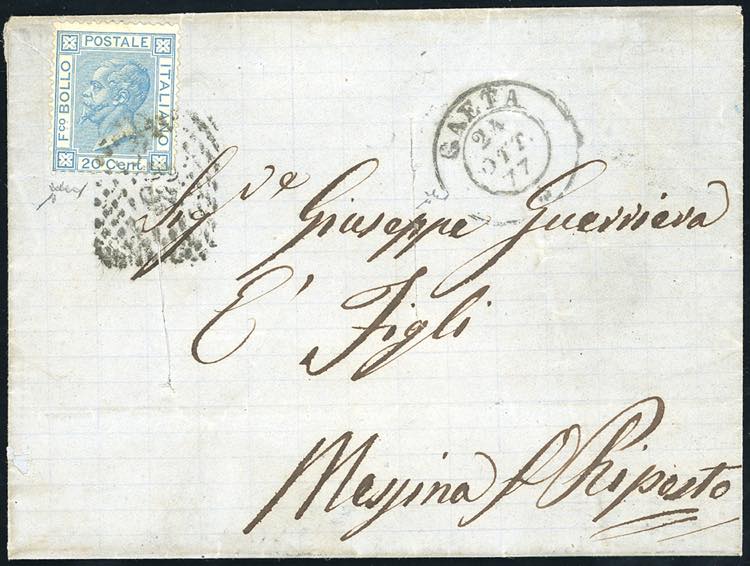 Fco BOLLO POSTALE ITALIANO
20 Cent
GAETA
24
OTT.
77
Sigre Giuseppe Guerriera
E' Figli
Messina p Riposto